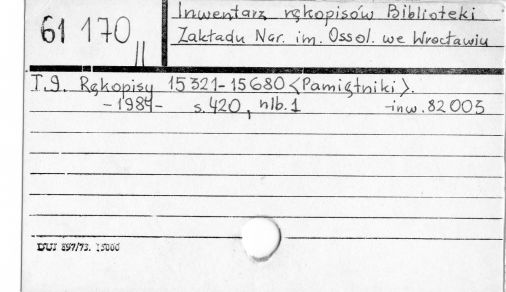 61 170 II
Inwentarz rękopisów Biblioteki
Zakładu Nar. im. Ossol. we Wrocławiu
T.9. Rękopisy 15321-15680 <Pamiętniki>.
-1984- s.420, nlb.1 -inw.82003
DUJ 897/73. 15000